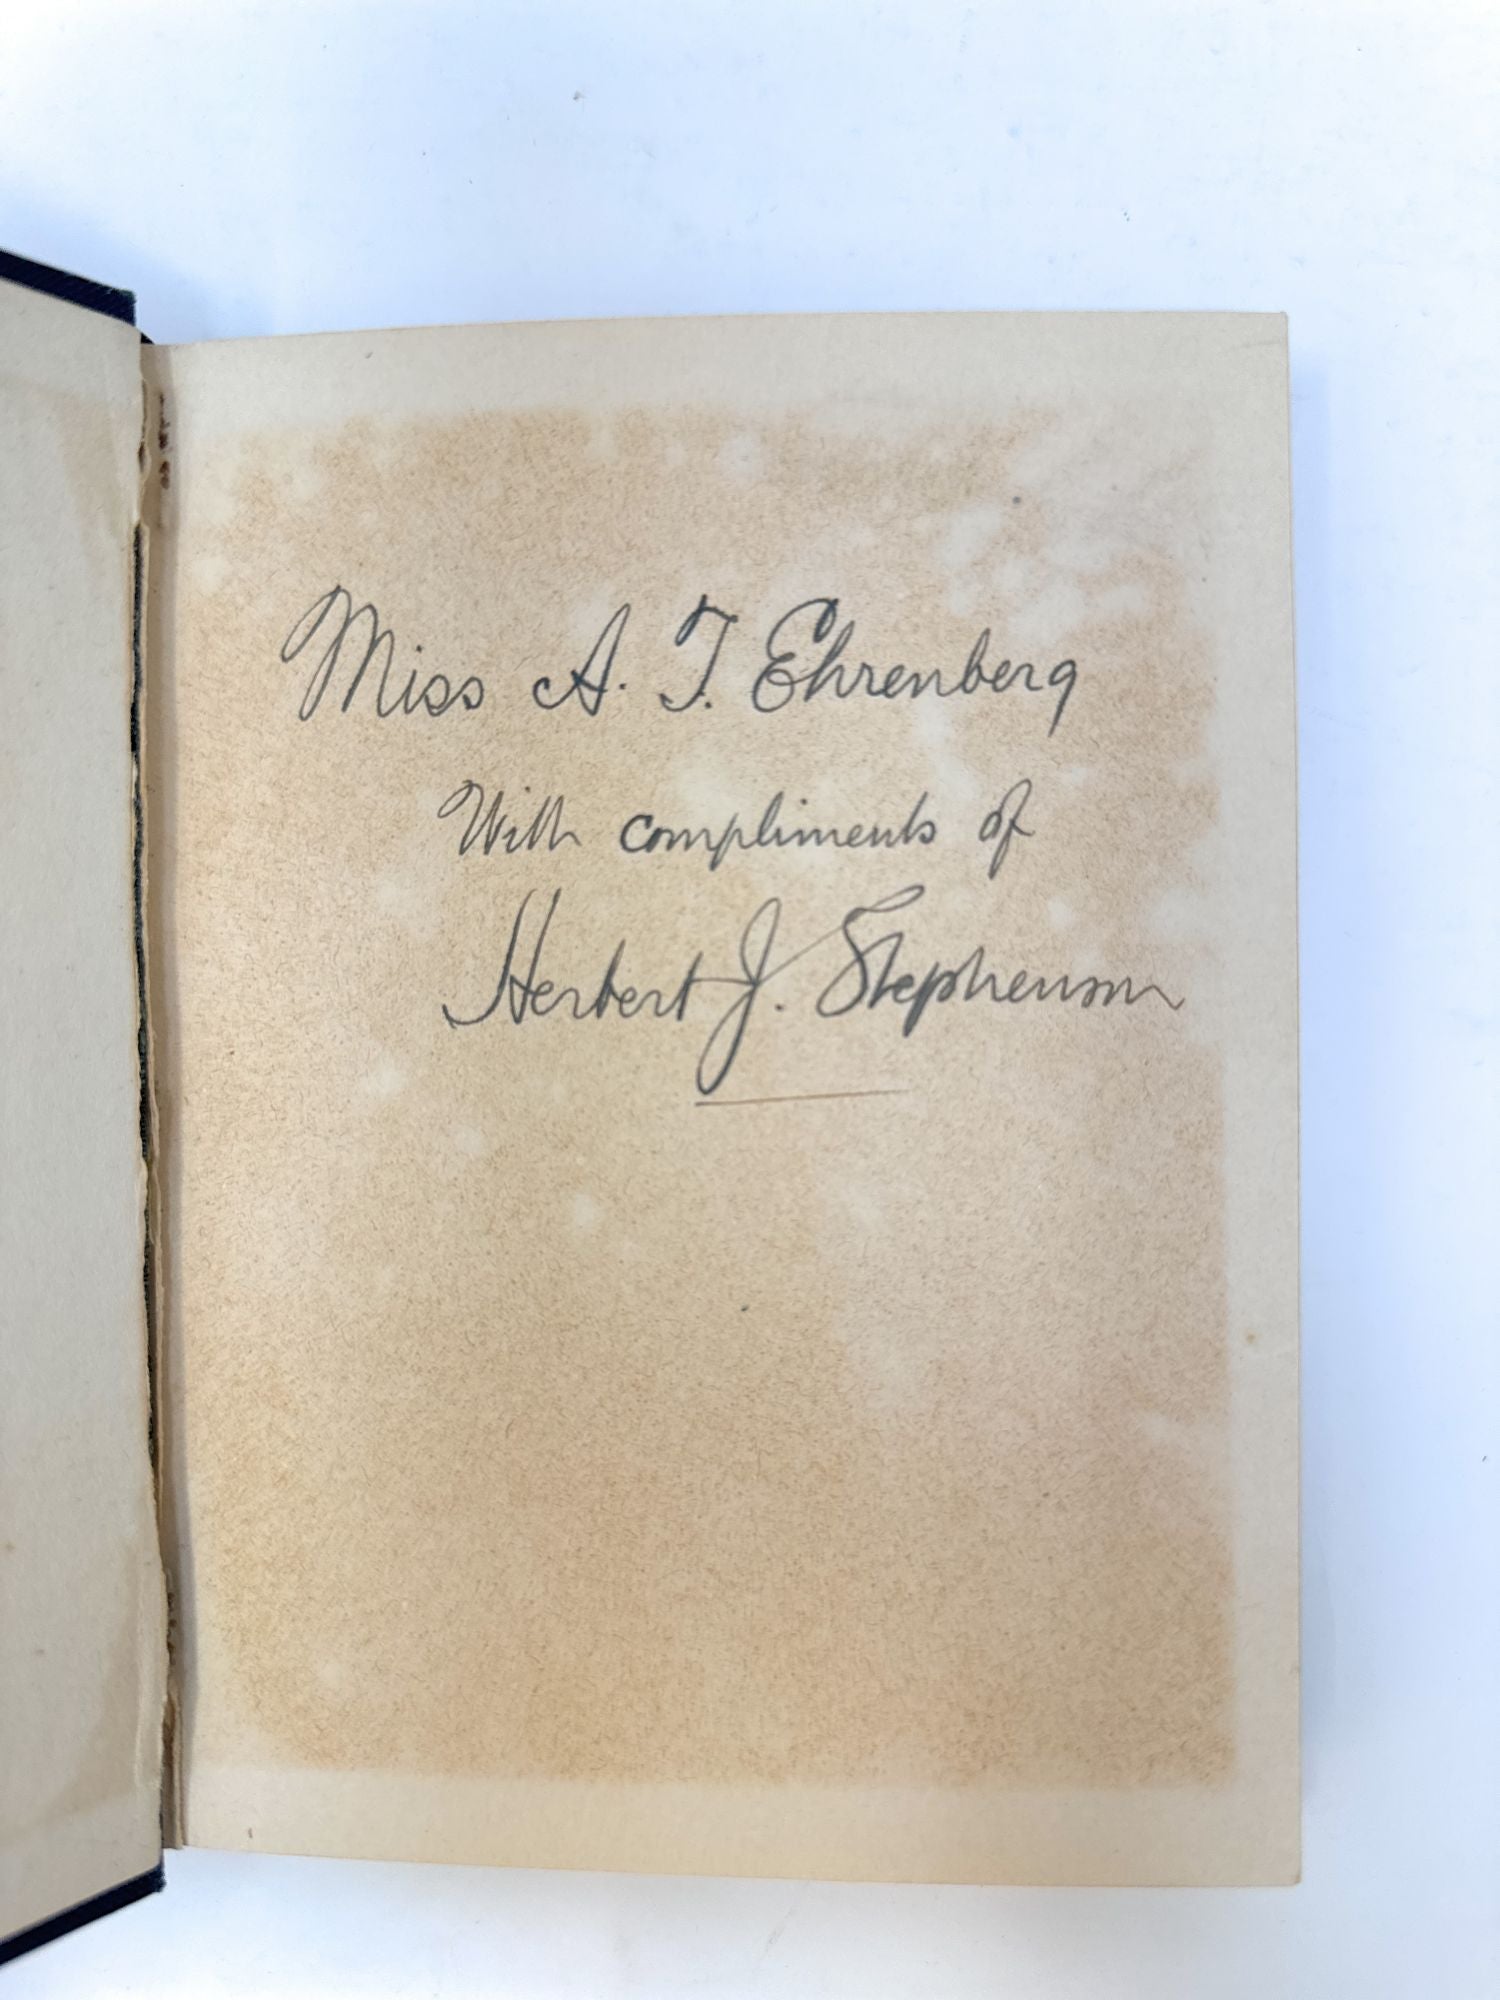 Miss A. T. Ehrenberg
With compliments of
Herbert J. Stephenson